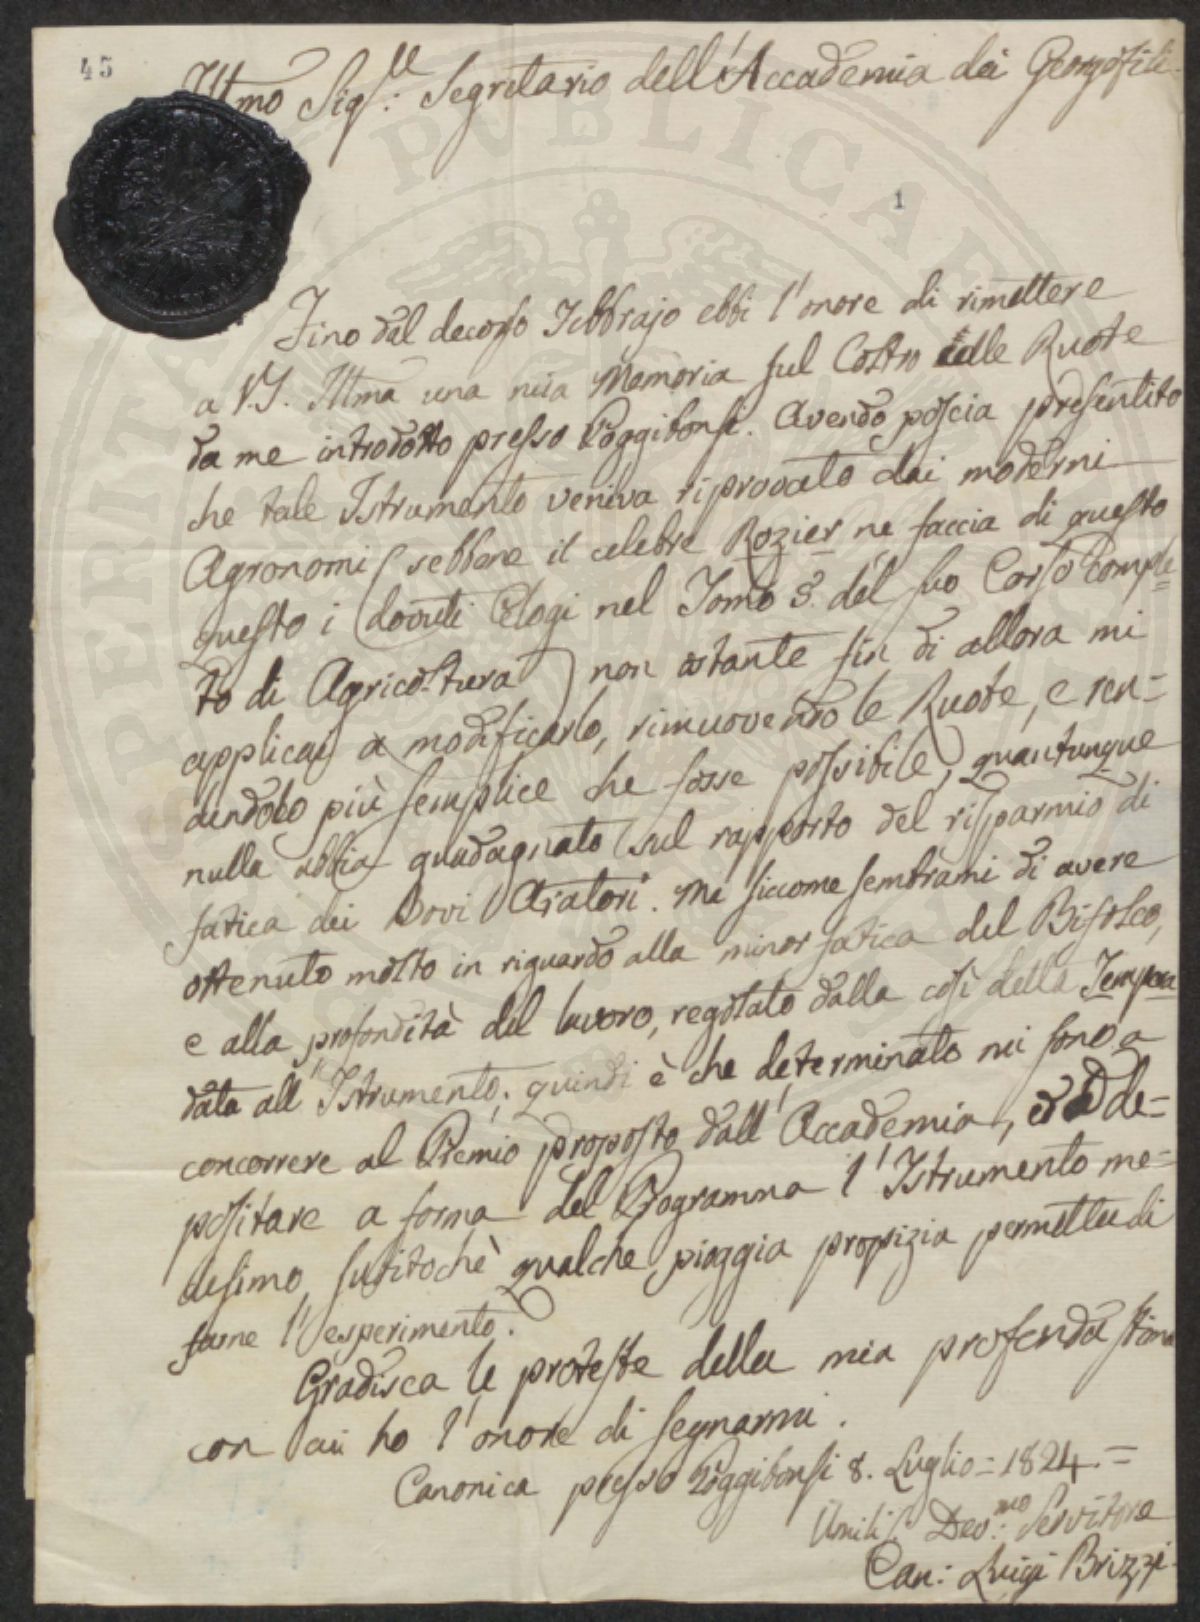 45
Illmo Sig.re Segretario dell'Accademia dei Georgofili
1
Fino dal decorso Febbrajo ebbi l'onore di rimettere
a V.S. Illma una mia Memoria sul Coltro colle Ruote
da me introdotto presso Poggibonsi. Avendo poscia presentito
che tale Istrumento veniva riprovato dai moderni
Agronomi (sebbene il celebre Rozier ne faccia di questo
questo i dovuti Elogi nel Tomo 8. del suo Corso Comple=
to di Agricoltura) non ostante sin di allora mi
applicai a modificarlo, rimuovendo le Ruote, e ren=
dendolo più semplice che fosse possibile, quantunque
nulla abbia guadagnato sul rapporto del risparmio di
fatica dei Bovi Aratori. Ma siccome sembrami di avere
ottenuto molto in riguardo alla minor fatica del Bifolco,
e alla profondità del lavoro, regolato dalla così della Tempera
data all'Istrumento; quindi è che determinato mi sono a
concorrere al Premio proposto dall'Accademia, ed a de=
positare a forma del Programma l'Istrumento me=
desimo, subitochè qualche pioggia propizia permetta di
farne l'esperimento.
Gradisca le proteste della mia profonda stima
con cui ho l'onore di segnarmi.
Canonica presso Poggibonsi 8. Luglio = 1824 =
Umilis. Dev.mo Servitore
Can: Luigi Brizzi